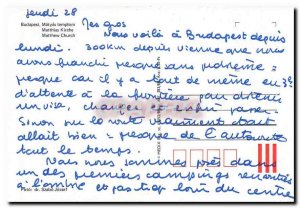 jeudi 28
Budapest, Mátyás templom
Matthias Kirche
Matthew Church
Mes gros
Nous voilà à Budapest depuis
lundi. 300km depuis Vienne que nous
avons franchi presque sans problème =
presque car il y a tout de même eu 3h
d'attente à la frontière pour obtenir
un visa, changer et enfin passer.
Sinon sur la route vraiment tout
allait bien = presque de l'autoroute
tout le temps.
Nous nous sommes posés dans
un des premiers campings rencontrés
à l'ombre et pas trop loin du centre
Photo: dr. Szabó József